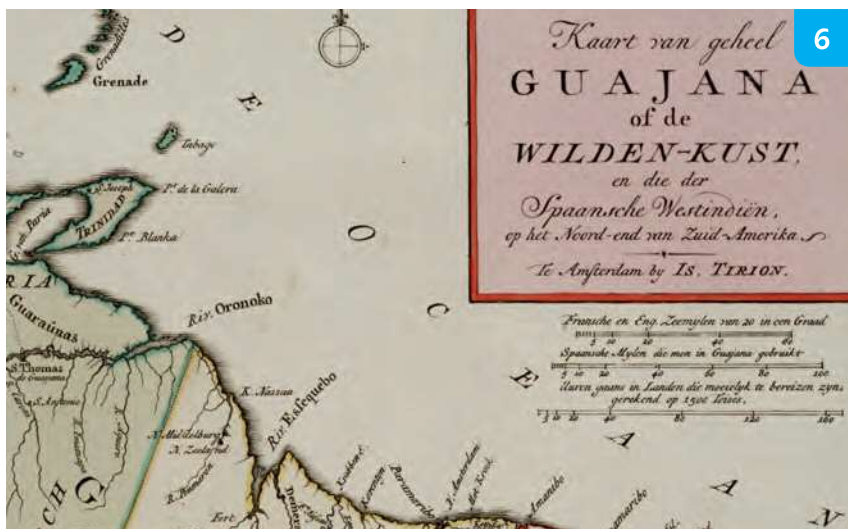 6
Kaart van geheel
GUAJANA
of de
WILDEN-KUST,
en die der
Spaansche Westindiën,
op het Noord-end van Zuid-Amerika
Te Amsterdam by IS. TIRION.
Fransche en Eng. Zeemylen van 20 in een Graad
5 10 20 40 60
Spaansche Mylen die men in Guajana gebruikt
5 10 20 40 60 80 100
Uuren gaans in Landen die moeielyk te bereizen zyn,
gerekend op 1500 Toises.
5 10 20 40 80 120 160
Grenadilles
Grenade
Tabago
S. Joseph
Pt. de la Galera
TRINIDAD
G. van Paria
Pt. Blanka
RIA
Guaraünas
Riv. Oronoko
S. Thomas
S. Antonio
K. Nassau
Riv. Essequebo
N. Middelburg
N. Zeeland
R. Pumaron
Fort
Demer
Paramaribo
F. Amsterdam
Amanibo
maribo
CH
G
DE OCEAAN